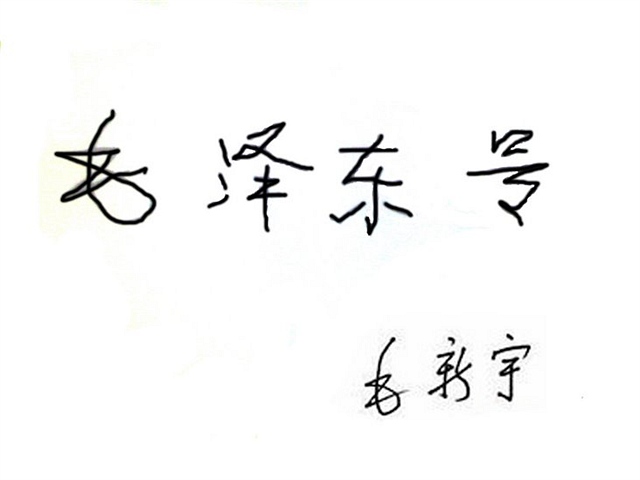 毛泽东号
毛新宇